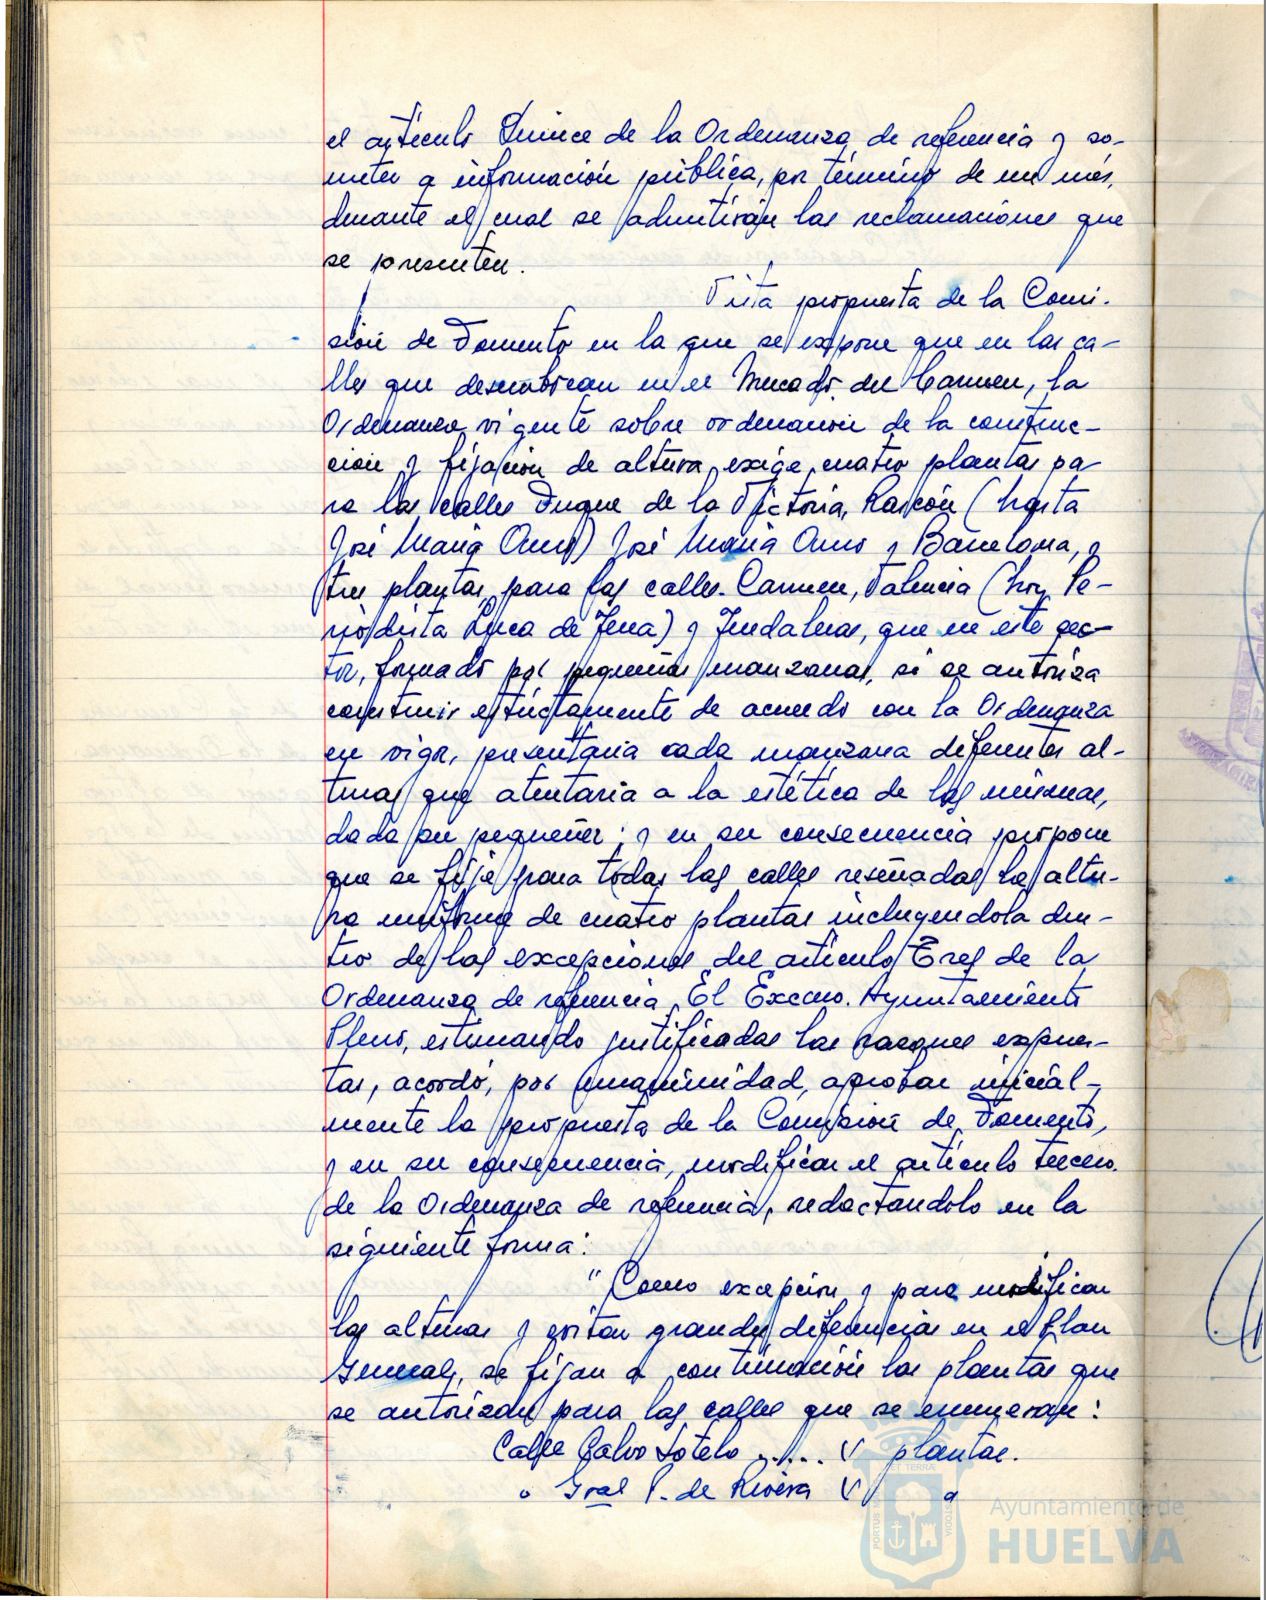 el artículo Quince de la Ordenanza de referencia y so-
meter a información pública, por término de un mes,
durante el cual se admitirán las reclamaciones que
se presenten.
Vista propuesta de la Comi-
sión de Fomento en la que se expone que en las ca-
lles que desembocan en el Mercado del Carmen, la
Ordenanza vigente sobre ordenación de la construc-
ción y fijación de altura exige cuatro plantas pa-
ra las calles Duque de la Victoria, Rascón (hasta
José María Amo) José María Amo y Barcelona, y
tres plantas para las calles Carmen, Valencia (hoy Pe-
riodista Luca de Tena) y Jendaleras, que en este sec-
tor, formado por pequeñas manzanas, si se autoriza
construir estrictamente de acuerdo con la Ordenanza
en vigor, presentaría cada manzana diferentes al-
turas que atentaría a la estética de las mismas,
dada su pequeñez; y en su consecuencia propone
que se fije para todas las calles reseñadas la altu-
ra uniforme de cuatro plantas incluyendola den-
tro de las excepciones del artículo Tres de la
Ordenanza de referencia. El Excmo. Ayuntamiento
Pleno, estimando justificadas las razones expues-
tas, acordó, por unanimidad, aprobar inicial-
mente la propuesta de la Comisión de Fomento,
y en su consecuencia, modificar el artículo tercero
de la Ordenanza de referencia, redactandolo en la
siguiente forma:
"Como excepción y para modificar
las alturas y evitar grandes diferencias en el Plan
General, se fijan a continuación las plantas que
se autorizan para las calles que se enumeran:
Calle Calvo Sotelo ..... V plantas.
" Gral P. de Rivera V "
Ayuntamiento de
HUELVA